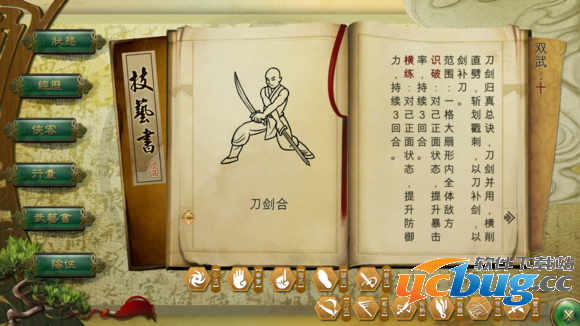 狀態
經歷
俠客
行囊
武藝書
隊伍
技藝書
刀剑合
双武:十
刀剑归真总诀,刀剑并用,横削
直劈,斩划戳刺,以刀补剑,以
剑补刀。
范围:一格大扇形内全体敌方
识破:对己正面状态,提升暴击
率,持续3回合。
横练:对己正面状态,提升防御
力,持续3回合。
软件下载站
ucbug.cc